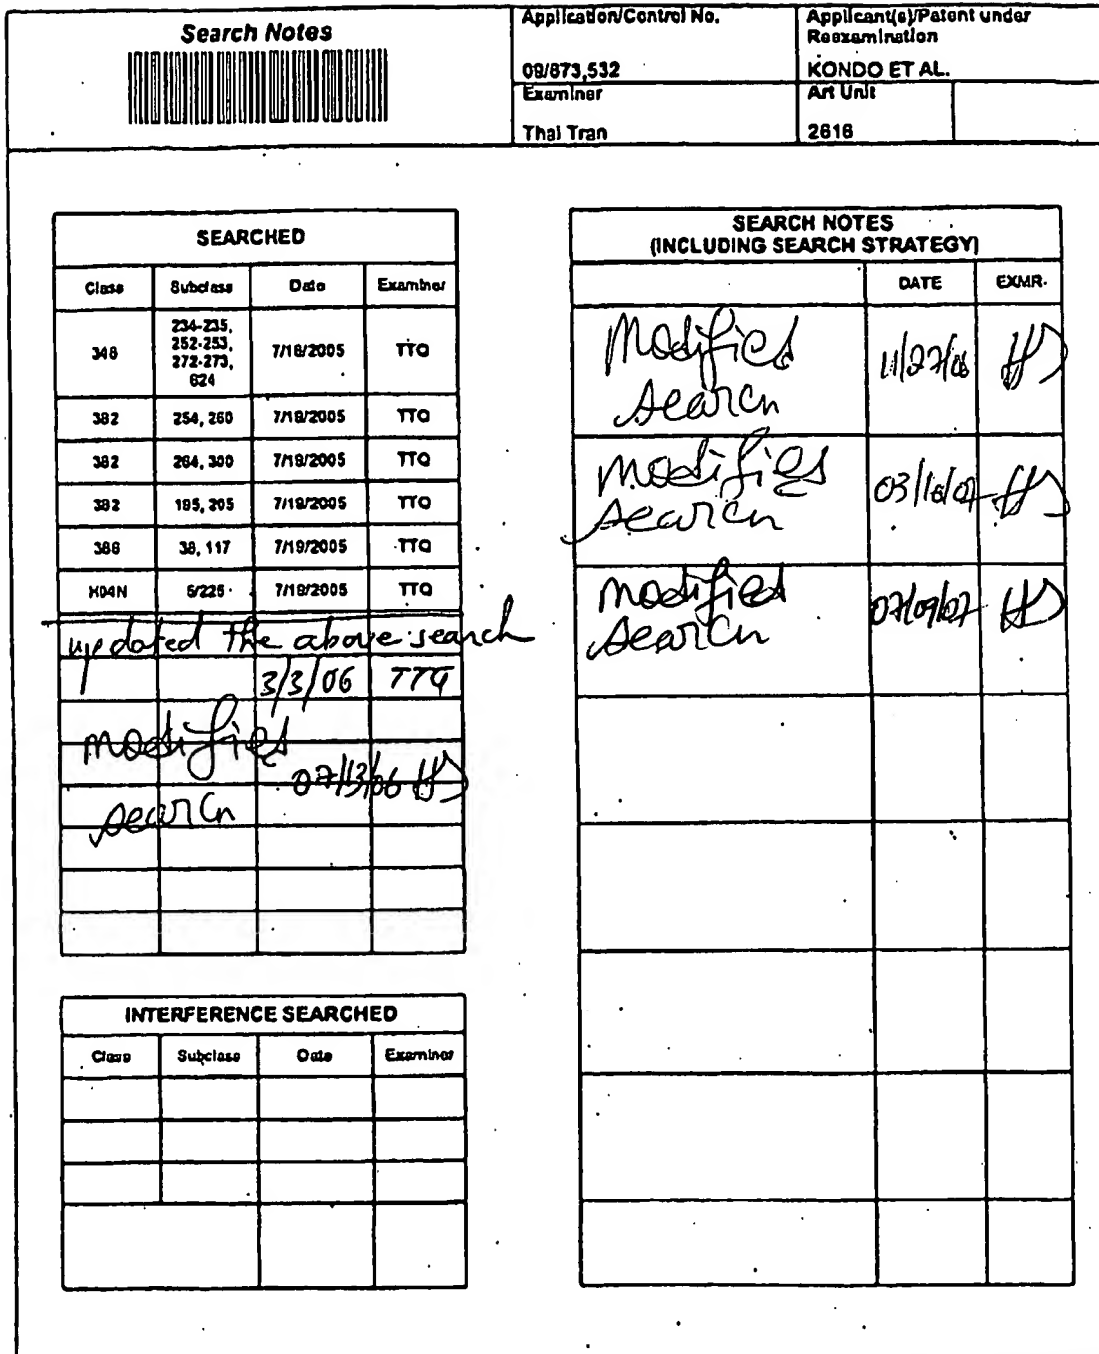 Search Notes
Application/Control No.
09/873,532
Applicant(s)/Patent under
Reexamination
KONDO ET AL.
Examiner
Thai Tran
Art Unit
2616
SEARCHED
Class Subclass Date Examiner
348 234-235, 252-253, 272-273, 624 7/18/2005 TTQ
382 254, 260 7/18/2005 TTQ
382 264, 300 7/19/2005 TTQ
382 195, 205 7/19/2005 TTQ
386 38, 117 7/19/2005 TTQ
H04N 5/225 7/19/2005 TTQ
updated the above search
3/3/06 TTQ
modified
07/13/06
search
INTERFERENCE SEARCHED
Class Subclass Date Examiner
SEARCH NOTES
(INCLUDING SEARCH STRATEGY)
DATE EXMR.
Modified 11/27/06
search
modified
search
modified 07/09/07
search